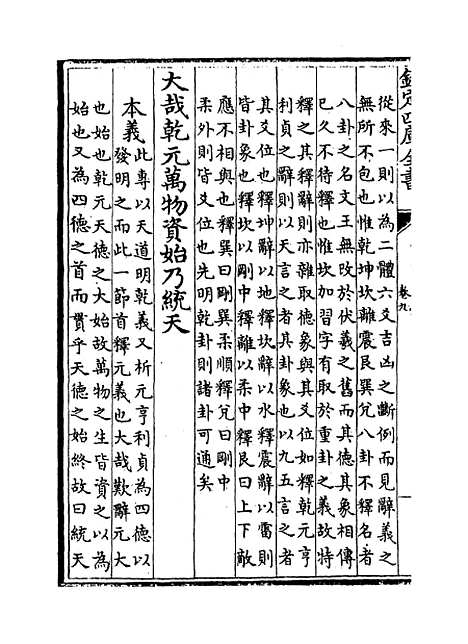 欽定四庫全書
卷九
從來一則以為二體六爻吉凶之斷例而見辭義之
無所不包也惟乾坤坎離震艮巽兌八卦不釋名者
八卦之名文王無攺於伏羲之舊而其德其象相傳
已久不待釋也惟坎加習字有取於重卦之義故特
釋之其釋辭則亦雜取德象與其爻位如釋乾元亨
利貞之辭則以天言之者其卦象也以九五言之者
其爻位也釋坤辭以地釋坎辭以水釋震辭以雷則
皆卦象也釋坎以剛中釋離以柔中釋艮曰上下敵
應不相與也釋巽曰剛巽柔順釋兌曰剛中
柔外則皆爻位也先明乾卦則諸卦可通矣
大哉乾元萬物資始乃統天
本義此專以天道明乾義又析元亨利貞為四德以
發明之而此一節首釋元義也大哉歎辭元大
也始也乾元天德之大始故萬物之生皆資之以為
始也又為四德之首而貫乎天德之始終故曰統天